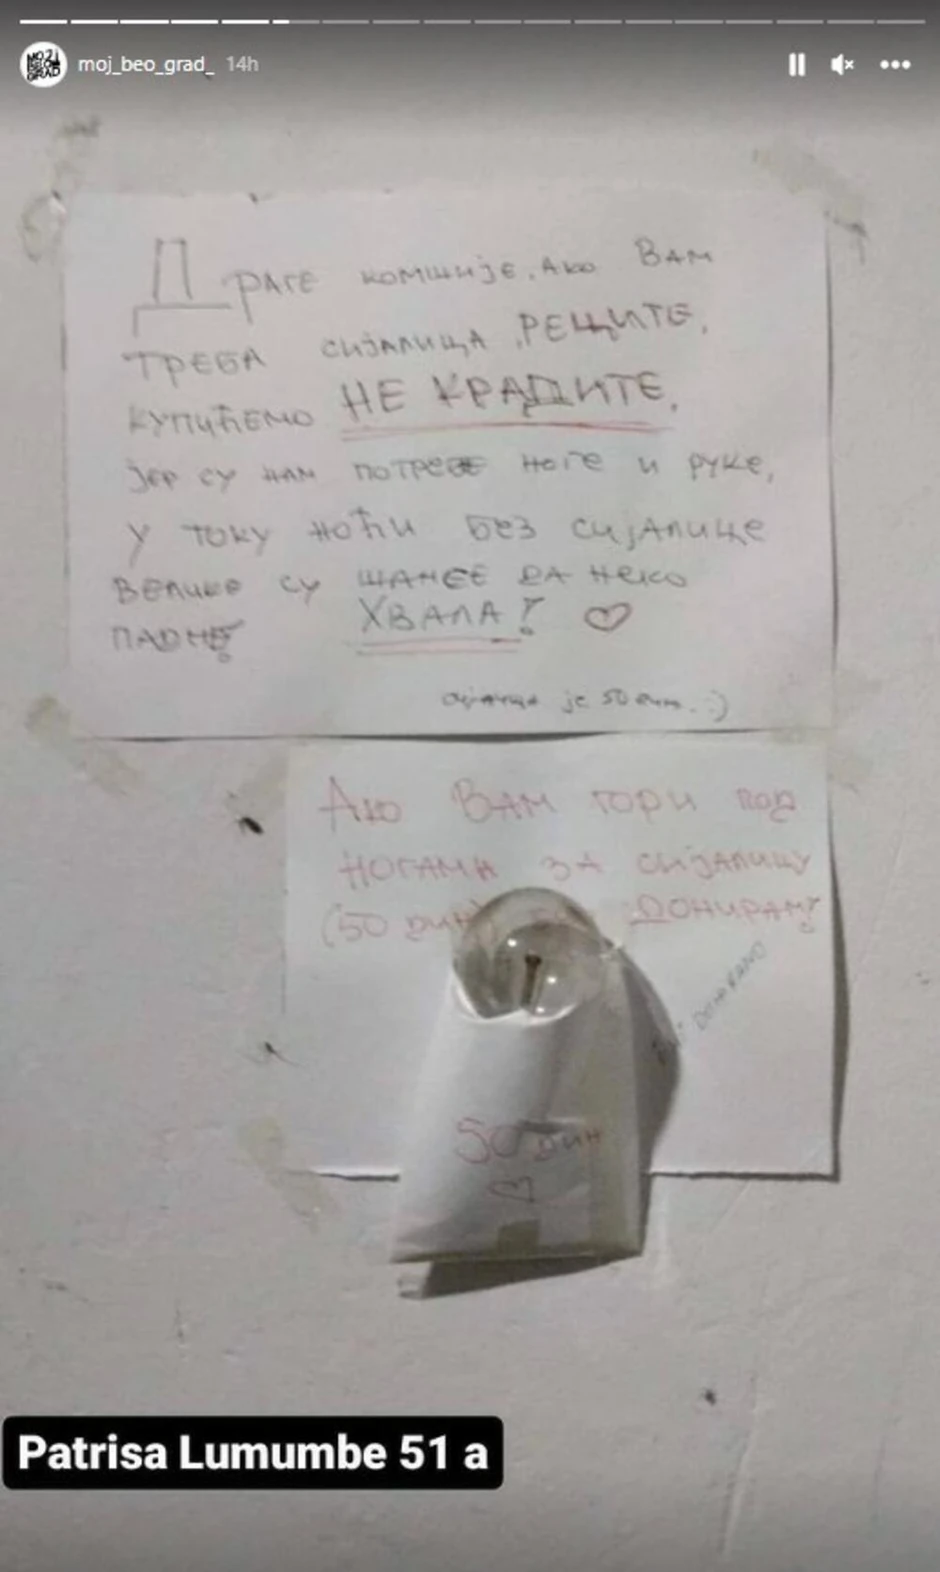 moj_beo_grad_ 14h
ДРАГЕ КОМШИЈЕ, АКО ВАМ
ТРЕБА СИЈАЛИЦА, РЕЦИТЕ,
КУПИЋЕМО НЕ КРАДИТЕ,
ЈЕР СУ НАМ ПОТРЕБЕ НОГЕ И РУКЕ,
У ТОКУ НОЋИ БЕЗ СИЈАЛИЦЕ
ВЕЛИКЕ СУ ШАНСЕ ДА НЕКО
ПАДНЕ! ХВАЛА! ♡
сијалица је 50 дин. :)
АКО ВАМ ГОРИ ПОД
НОГАМА ЗА СИЈАЛИЦУ
(50 ДИН) ДОНИРАМ!
ДОНИРАНО
50 дин
♡
Patrisa Lumumbe 51 a